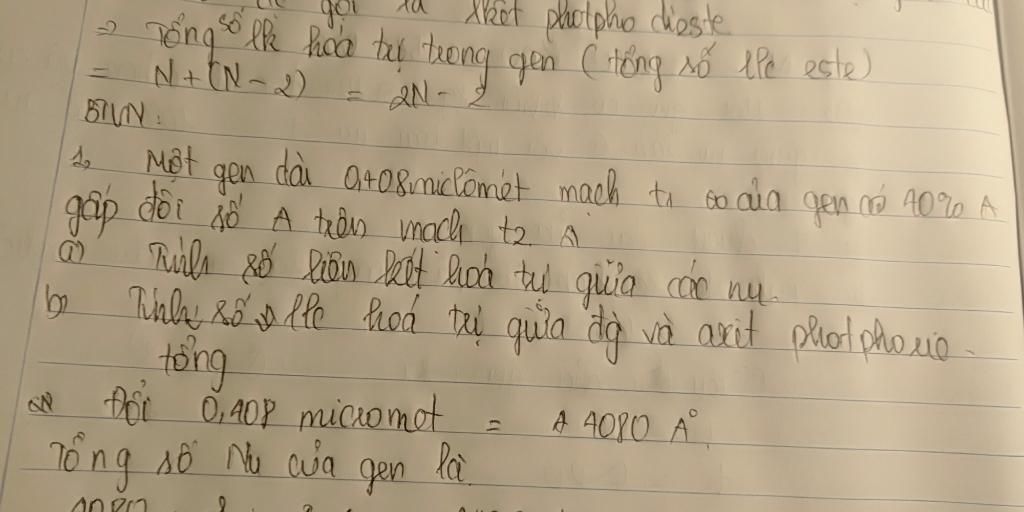 gọi là photpho dieste
⇒ Tổng số lk hoá trị trong gen (tổng số lk este)
= N + (N - 2) = 2N - 2
BTVN:
1, Một gen dài 0,408 micrômét mạch t1 của gen có 40% A
gấp đôi số A trên mạch t2
a) Tính số liên kết hoá trị giữa các nu.
b) Tính số lk hoá trị giữa đg và axit photphoric.
tổng
Đổi 0,408 micromet = 4080 A°.
Tổng số Nu của gen là
4080